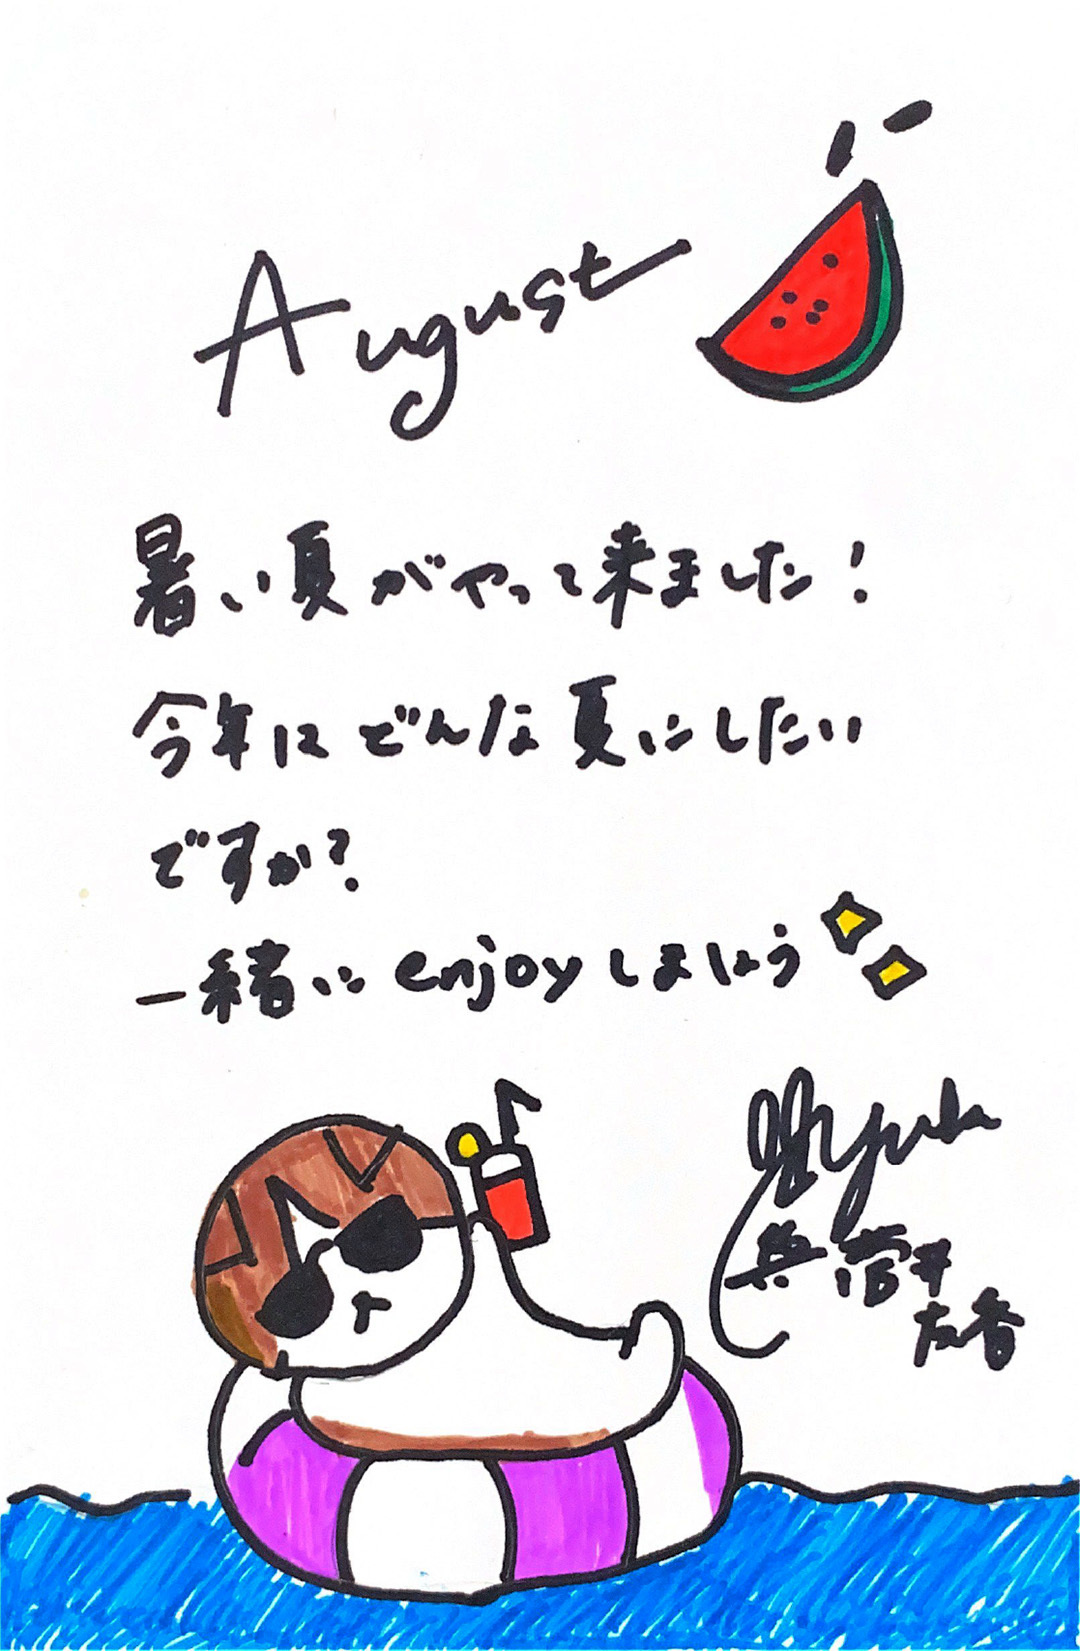 August
暑い夏がやって来ました!
今年はどんな夏にしたい
ですか?
一緒に enjoy しましょう
yuuka
菅井
友香